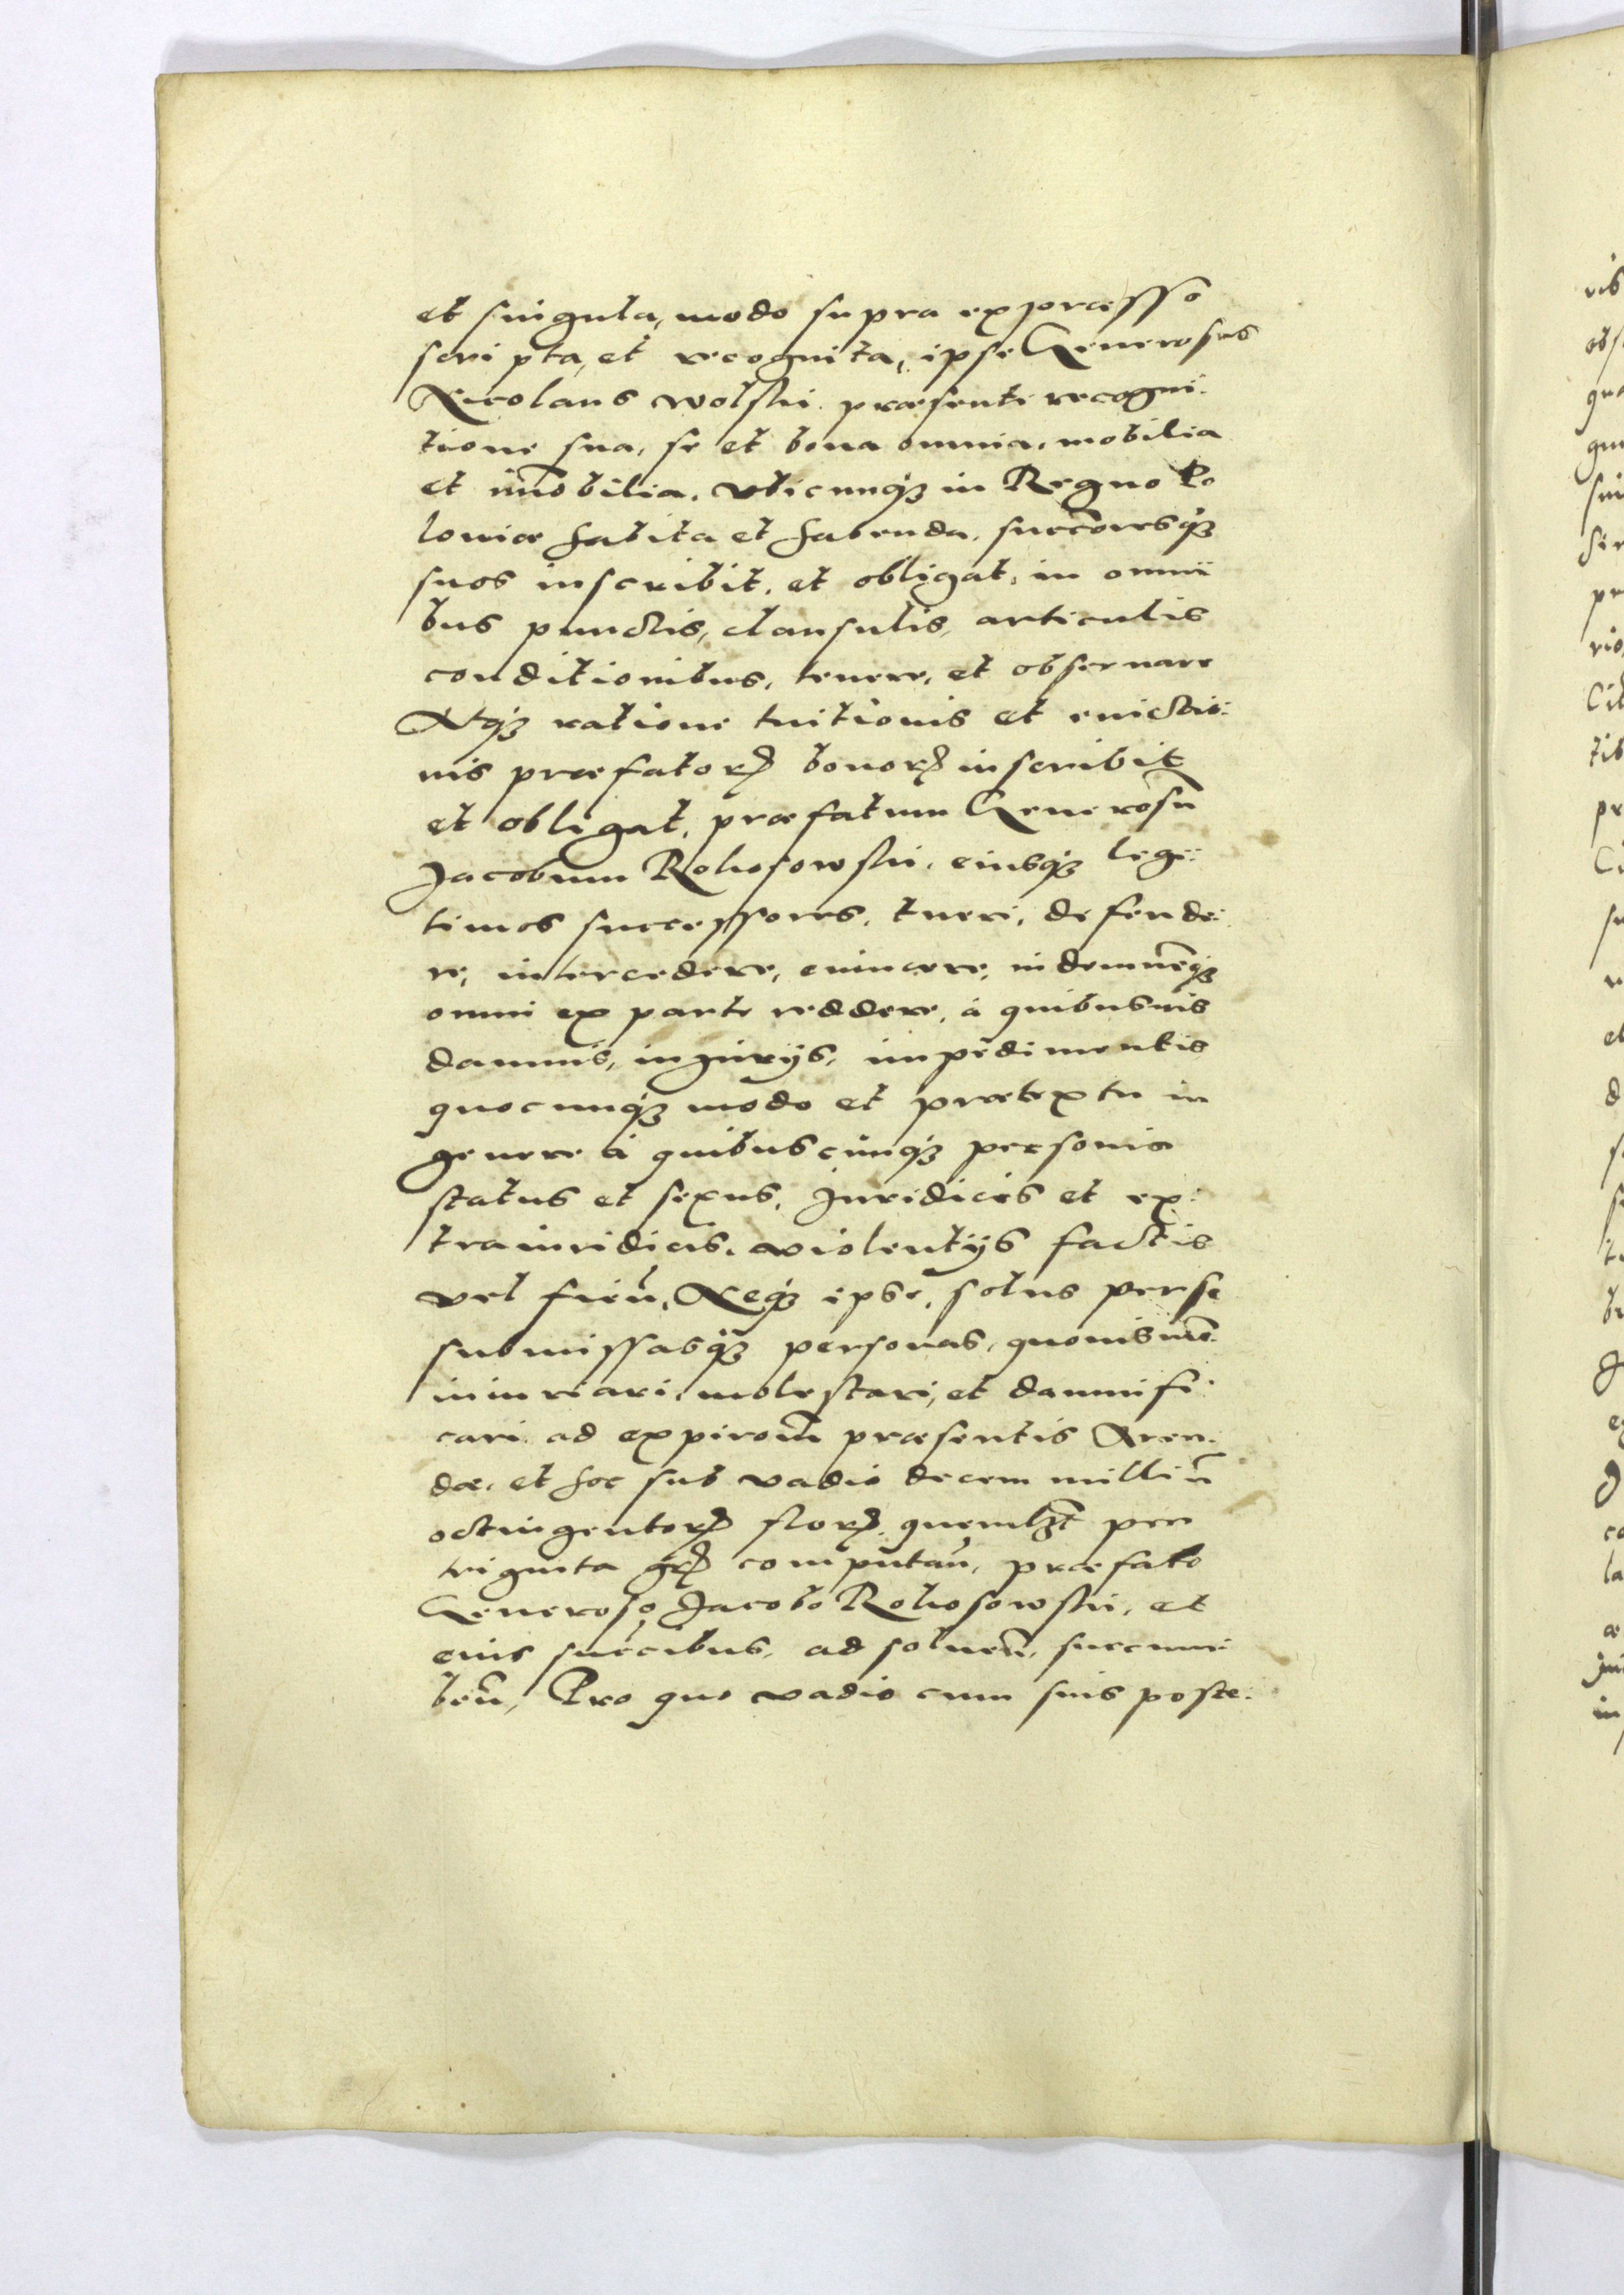 et singula, modo supra expræsso
scripta, et recognita, ipse Generosus
Nicolaus Wolski præsenti recogni:
tione sua, se et bona omnia, mobilia
et im̃obilia, vbicunq3 in Regno Po
loniæ habita et habenda, succ̃oresq3
suos inscribit, et obligat, in omni
bus punctis, clausulis, articulis
conditionibus, tenere, et obseruare
Atq3 ratione tuitionis et euictio:
nis præfatorꝝ bonorꝝ inscribit
et obligat, præfatum Generosũ
Jacobum Rokosowski, eiusq3 legi:
timos successores, tueri, defende:
re, intercedere, euincere, indemnẽq3
omni ex parte reddere, à quibusuis
damnis, iniurijs, impedimentis
quocunq3 modo et prætextu in
genere à quibuscunq3 personis
status et sexus, Juridicis et ex:
traiuridicis, violentijs factis
vel fien̄, Neq3 ipse, solus per se
submissasq3 personas, quouismõ
iniuriari, molestari, et damnifi:
cari ad expirom̃ præsentis Aren:
dæ, et hoc sub vadio decem milliũ
octingentorꝝ florꝝ, quemlȝt per
triginta grꝝ computan̄, præfato
Generoso Jacobo Rokosowski, et
eius succibus, ad soluen̄, succum
ben̄, Pro quo vadio cum suis poste:

ris